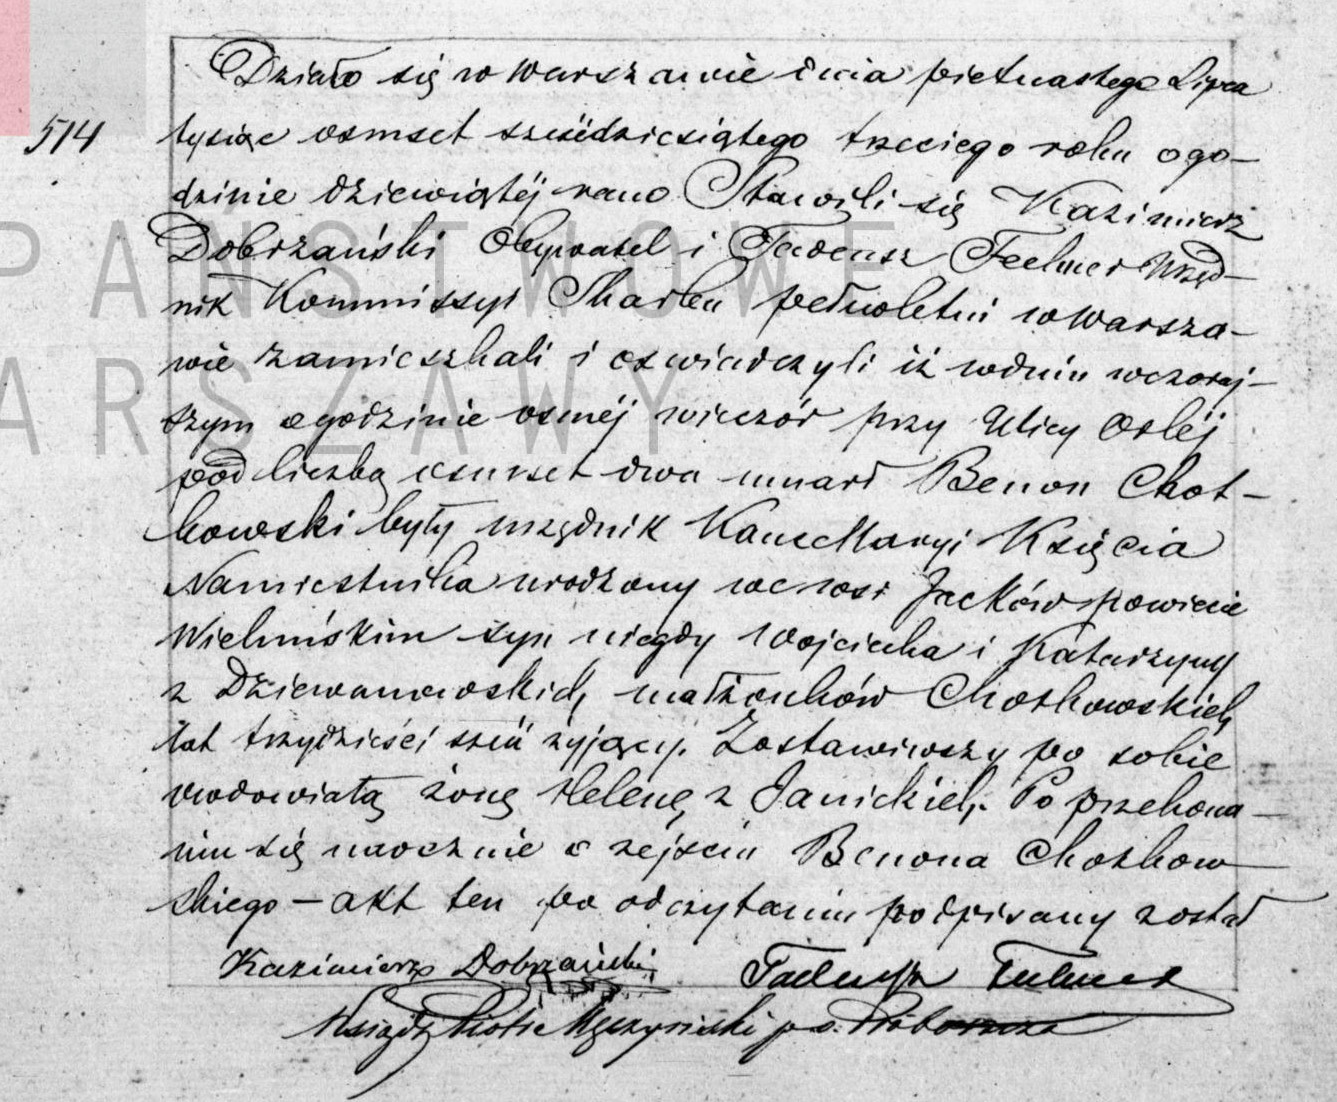 Działo się w Warszawie dnia piętnastego Lipca
514
tysiąc osmset sześćdziesiątego trzeciego roku o go-
dzinie dziewiątéj rano Stawili się Kazimierz
PAŃSTWOWE
Dobrzański Obywatel i Tadeusz Urzęd-
nik Kommissyi Skarbu pełnoletni w Warsza-
wie zamieszkali i oswiadczyli iż w dniu wczoraj-
ARSZAWY
szym o godzinie osméj wieczór przy Ulicy Orléj
pod liczbą osmset dwa umarł Benon Chot-
kowski były urzędnik Kancellaryi Księcia
Namiestnika urodzony we wsi Jacków powiecie
Wieluńskim syn niegdy Wojciecha i Katarzyny
z małżonków Chotkowskich
lat trzydzieści sześć żyjący. Zostawiwszy po sobie
owdowiałą żonę Helenę z Janickich. Po przekona-
niu się naocznie o zejściu Benona Chotkow
skiego – akt ten po odczytaniu podpisany został
Kazimierz Dobrzański Tadeusz
Ksiądz Piotr p.o. Proboszcza